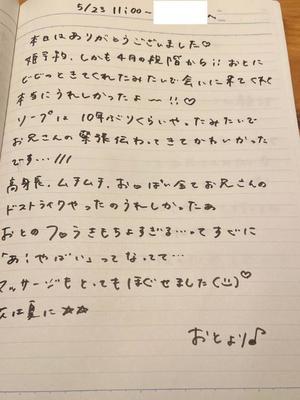 5/23 11:00〜
本日はありがとうございました♡
姫予約、しかも4月の段階から!! おとに
ビビッときてくれたみたいで会いに来てくれ
本当にうれしかったよ〜!!♡
ソープは10年ぶりくらいやったみたいで
お兄さんの緊張伝わってきてかわいかった
です…///
高身長、ムチムチ、おっぱい全てお兄さんの
ドストライクやったのうれしかったぁ
おとのフロうきもちよすぎる…ってすぐに
「あ!やばい」ってなってて…
マッサージもとってもほぐせました(¨)♡
次は夏に☆☆
おとより♪